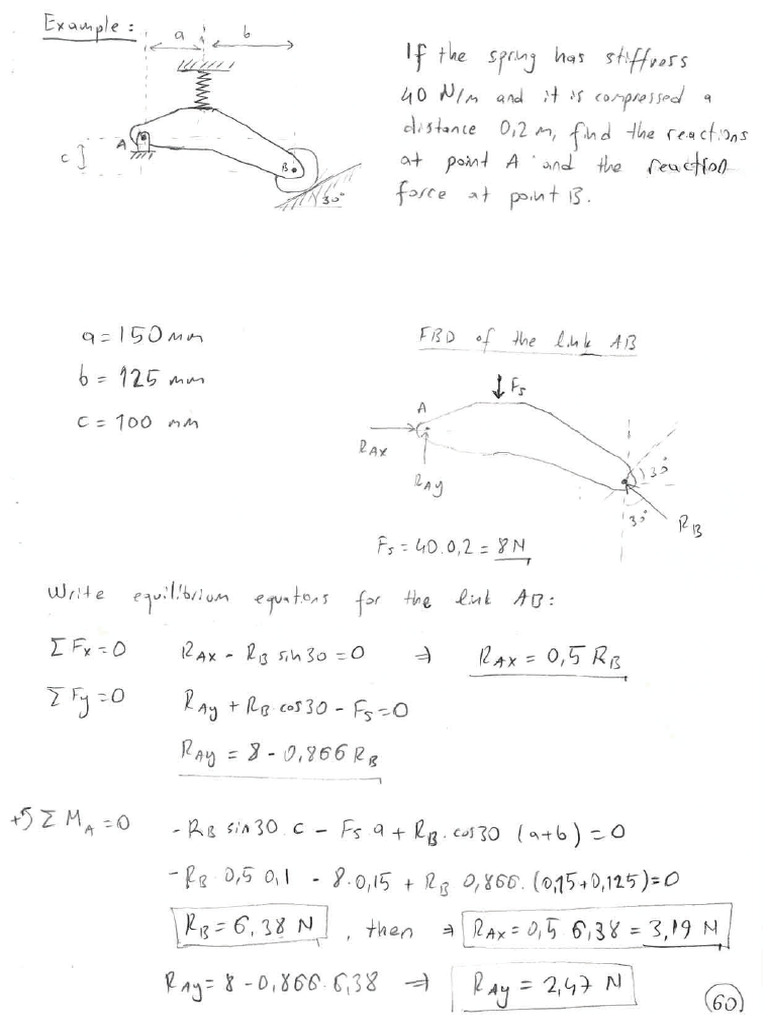 Example:
a
b
If the spring has stiffness
40 N/m and it is compressed a
distance 0,2 m, find the reactions
at point A and the reaction
force at point B.
A
B
c
30°
a = 150 mm
b = 125 mm
c = 100 mm
FBD of the link AB
Fs
A
RAx
RAy
30°
30°
RB
Fs = 40.0,2 = 8N
Write equilibrium equations for the link AB:
ΣFx=0 RAx - RB sin30 = 0 ⇒ RAx = 0,5 RB
ΣFy=0 RAy + RB.cos30 - Fs=0
RAy = 8 - 0,866 RB
+↺ ΣMA=0 -RB sin30.c - Fs.a + RB.cos30 (a+b) = 0
-RB.0,5 0,1 - 8.0,15 + RB 0,866.(0,15+0,125)=0
RB = 6,38 N , then ⇒ RAx = 0,5 6,38 = 3,19 N
RAy = 8 - 0,866.6,38 ⇒ RAy = 2,47 N
60